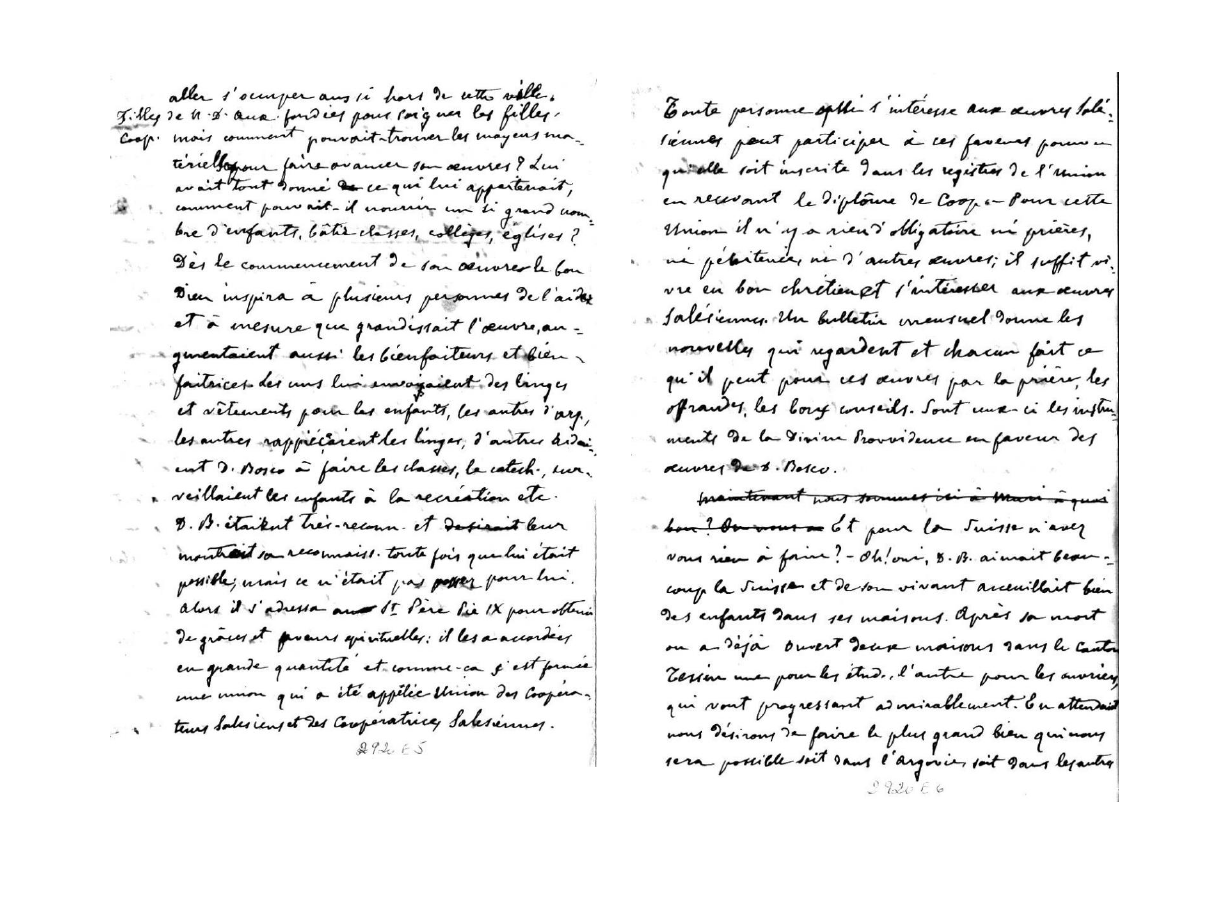 aller s'occuper aussi hors de cette ville.
Filles de N. D. Aux. fondées pour soigner les filles.
Coop. mais comment pouvait-trouver les moyens ma-
térielles pour faire avancer son œuvres? Lui
avait tout donné de ce qui lui appartenait,
comment pouvait-il nourrir un si grand nom-
bre d'enfants, bâtir classes, collèges, églises?
Dès le commencement de son œuvres le bon
Dieu inspira à plusieurs personnes de l'aider
et à mesure que grandissait l'œuvre, au-
gmentaient aussi les bienfaiteurs et bien-
faitrices. Les uns lui envoyaient des linges
et vêtements pour les enfants, les autres d'arg.,
les autres rappiécèrent les linges, d'autres aidai-
ent D. Bosco à faire les classes, le catech., sur-
veillaient les enfants à la recréation etc.
D. B. étaient très-reconn. et desirait leur
montrait sa reconnaiss. toute fois que lui était
possible; mais ce n'était pas pour lui.
Alors il s'adressa au St Père Pie IX pour obtenir
de grâces et faveurs spirituelles: il les a accordées
en grande quantité et comme-ça s'est formée
une union qui a été appélée Union des Coopéra-
teurs Salesiens et des Coopératrices Salesiennes.
2920 E 5
Toute personne qui s'intéresse aux œuvres Salé-
siennes peut participer à ces faveurs pourvu
qu'elle soit inscrite dans les registres de l'Union
en recevant le diplôme de Coop. - Pour cette
Union il n'y a rien d'obligatoire ni prières,
ni pénitences, ni d'autres œuvres; il suffit vi-
vre en bon chrétien et s'intéresser aux œuvres
Salésiennes. Un bulletin mensuel donne les
nouvelles qui regardent et chacun fait ce
qu'il peut pour ces œuvres par la prière, les
offrandes, les bons conseils. Sont ceux-ci les instru-
ments de la Divine Provvidence en faveur des
œuvres de D. Bosco.
Maintenant nous sommes ici à Muri à quoi
bon? Et pour la Suisse n'avez
vous rien à faire? - Oh! oui, D. B. aimait beau-
coup la Suisse et de son vivant acceuillait bien
des enfants dans ses maisons. Après sa mort
on a déjà ouvert deux maisons dans le Canton
Tessin une pour les étud., l'autre pour les ouvriers,
qui vont progressant admirablement. En attendant
nous désirons de faire le plus grand bien qui nous
sera possible soit dans l'Argovie, soit dans les autres
2920 E 6